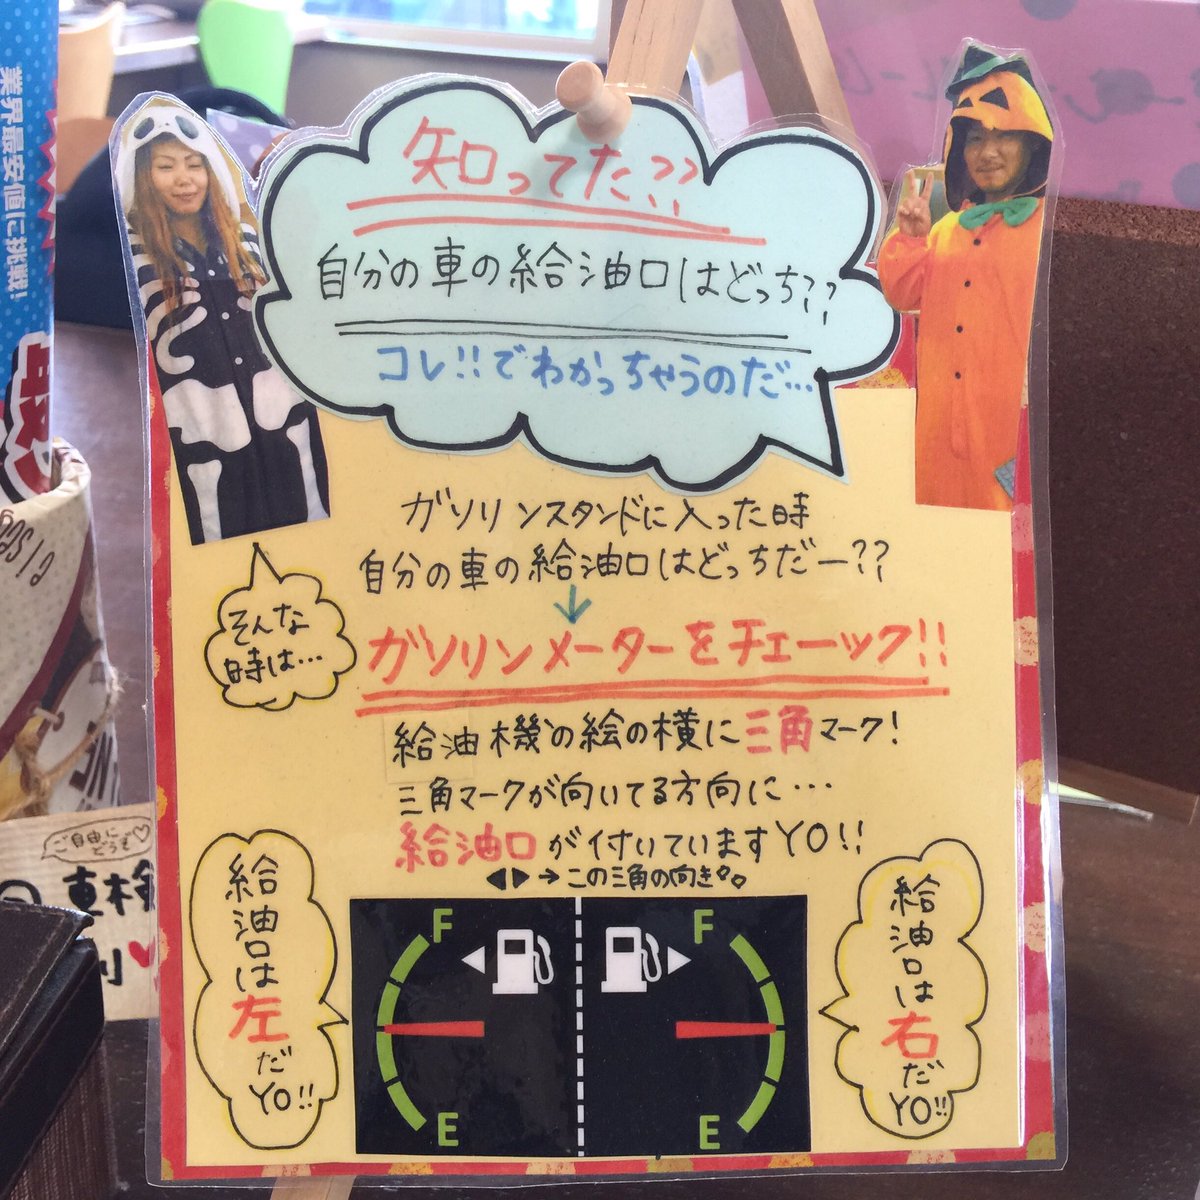 知ってた??
自分の車の給油口はどっち??
コレ!!でわかっちゃうのだ…
ガソリンスタンドに入った時
自分の車の給油口はどっちだー??
↓
そんな
時は…
ガソリンメーターをチェーック!!
給油機の絵の横に三角マーク!
三角マークが向いてる方向に…
給油口が付いていますYO!!
◀▶→この三角の向き。。
給油口は左だYO!!
F
E
F
E
給油口は右だYO!!
業界最安値に挑戦!
ご自由に
どうぞ♡